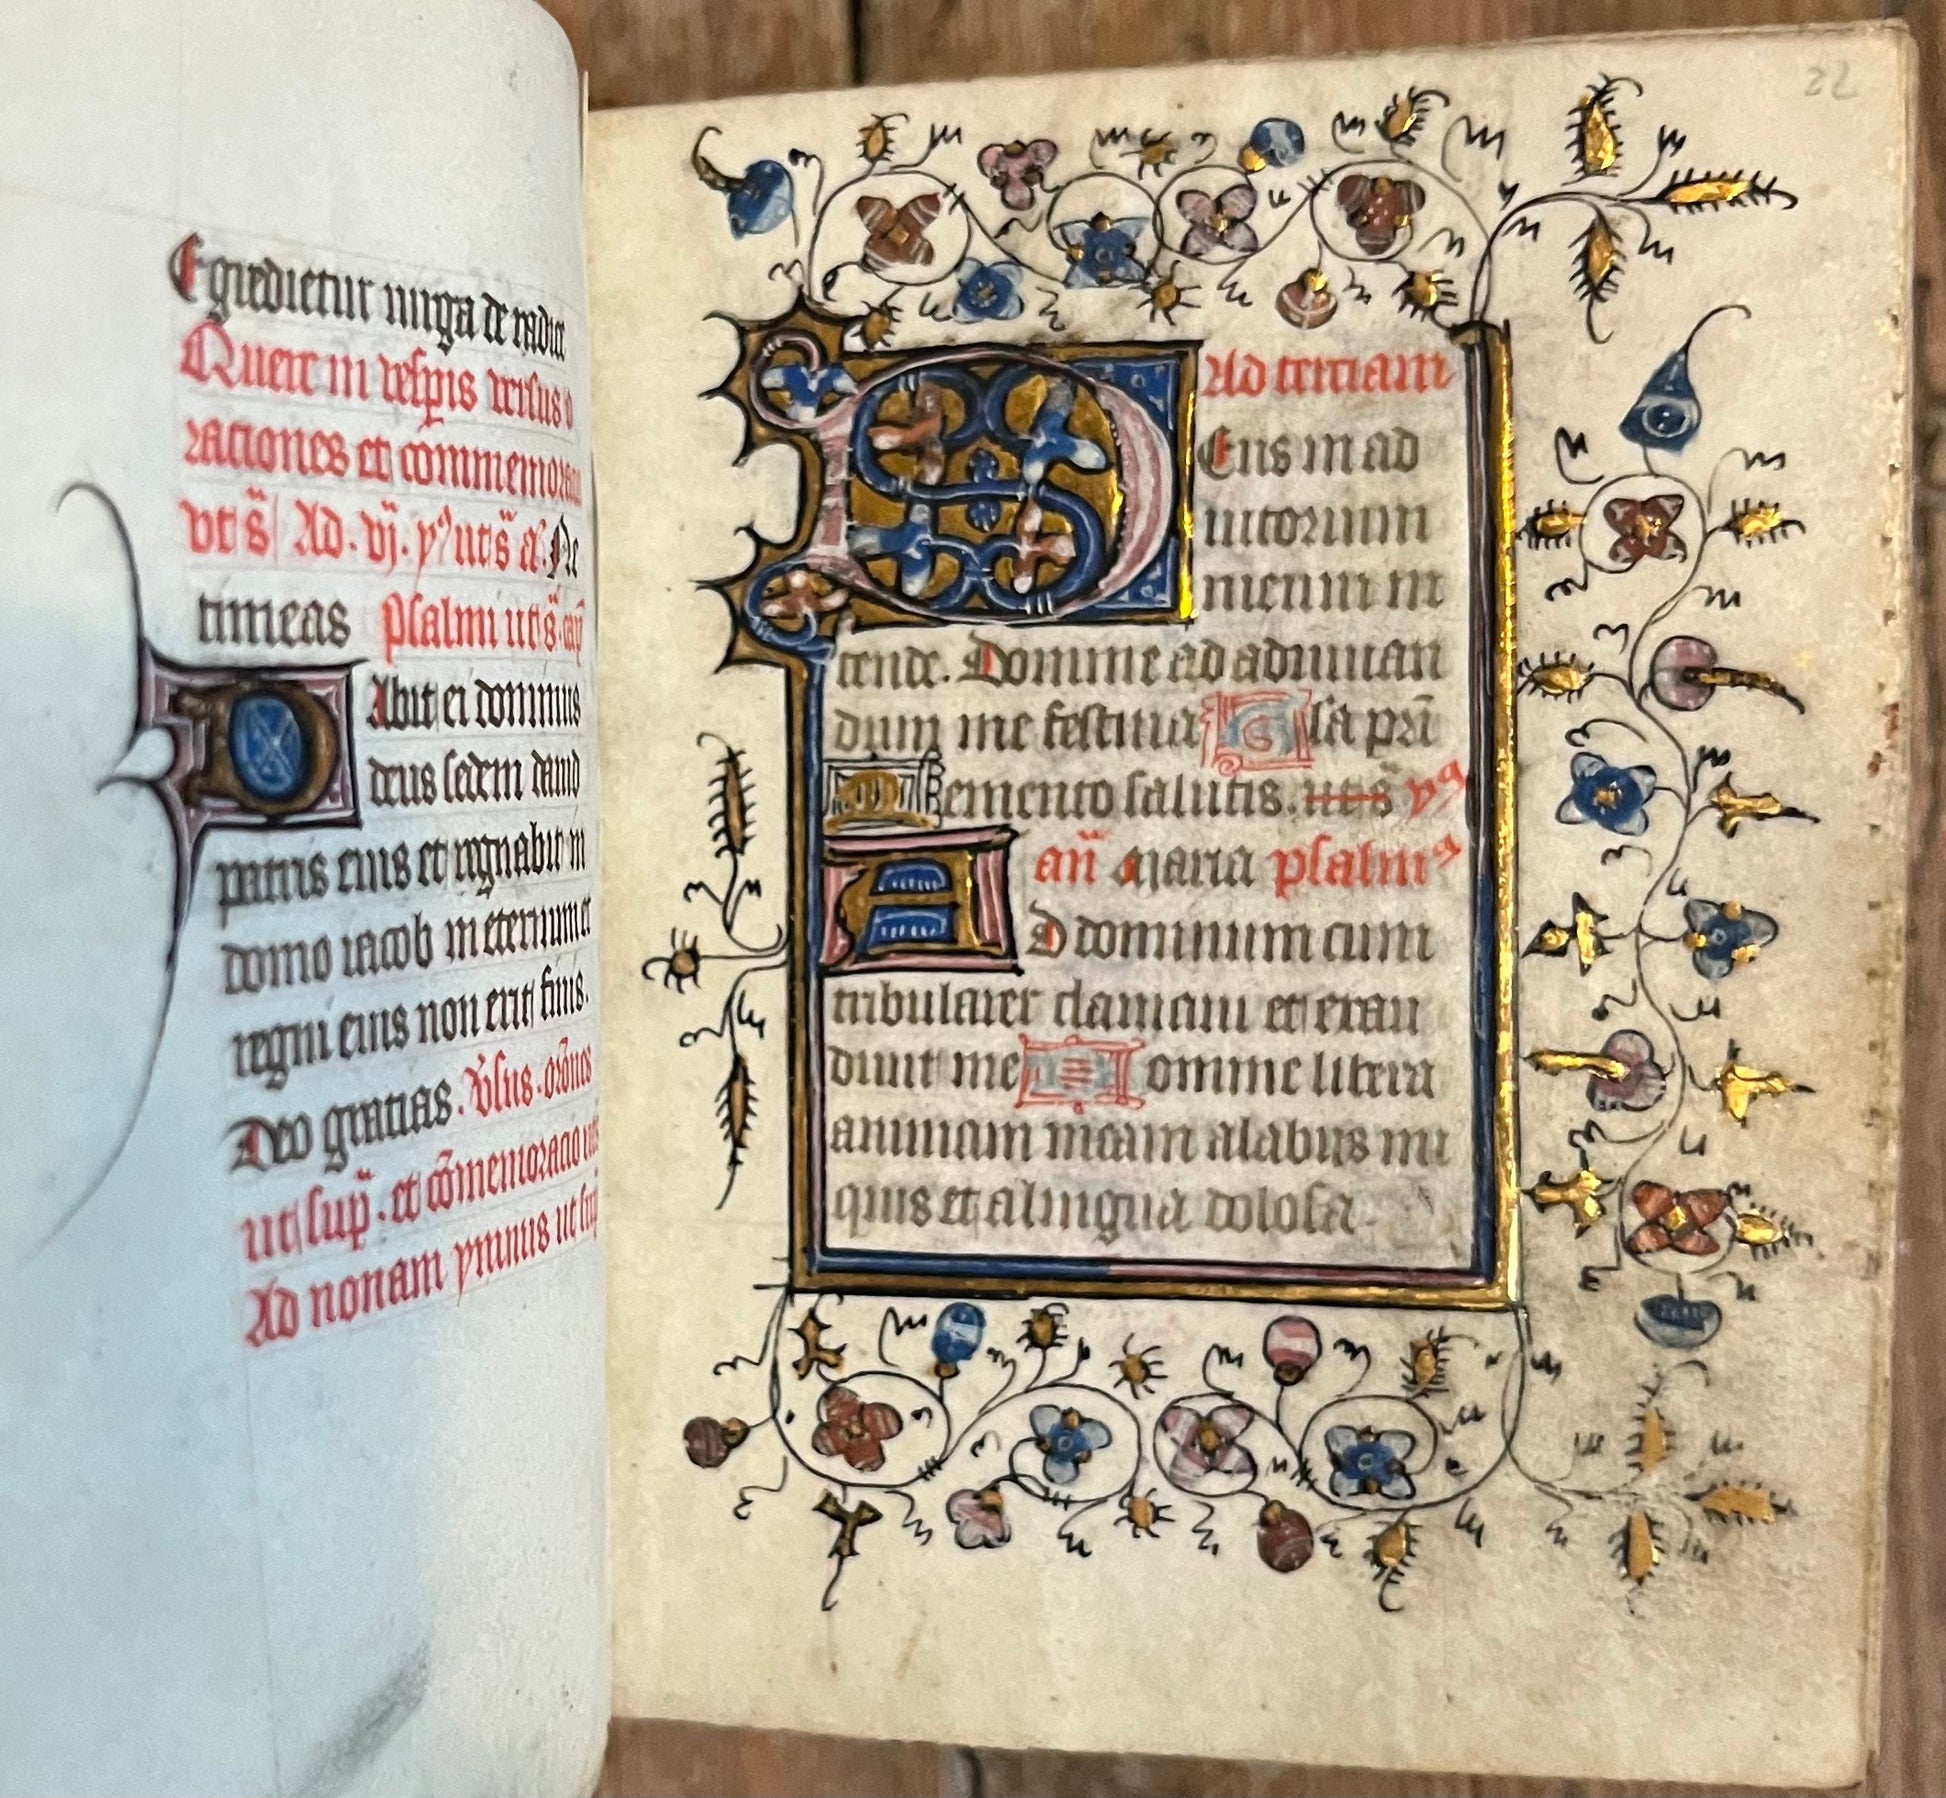 Egredietur uirga de radice
Quere in vesperis versus o
rationes et commemora
vt s̃ Ad . vj . p⁹ ut s̃ añ Ne
timeas psalmi ut s̃
DAbit ei dominus
deus sedem dauid
patris eius et regnabit in
domo iacob in eternum et
regni eius non erit finis.
Deo gratias. v̓sus . or̃ones
ut sup̃ . et cõmemoratio
Ad nonam ymnus ut sup̃
22
Ad tertiam
DEus in ad
iutorium
meum in
tende. Domine ad adiuuan
dum me festina Gl̃a pr̃i
Memento salutis. ut s̃ p⁹
añ Maria psalm⁹
AD dominum cum
tribularer clamaui et exau
diuit me Domine libera
animam meam a labiis ini
quis et a lingua dolosa.